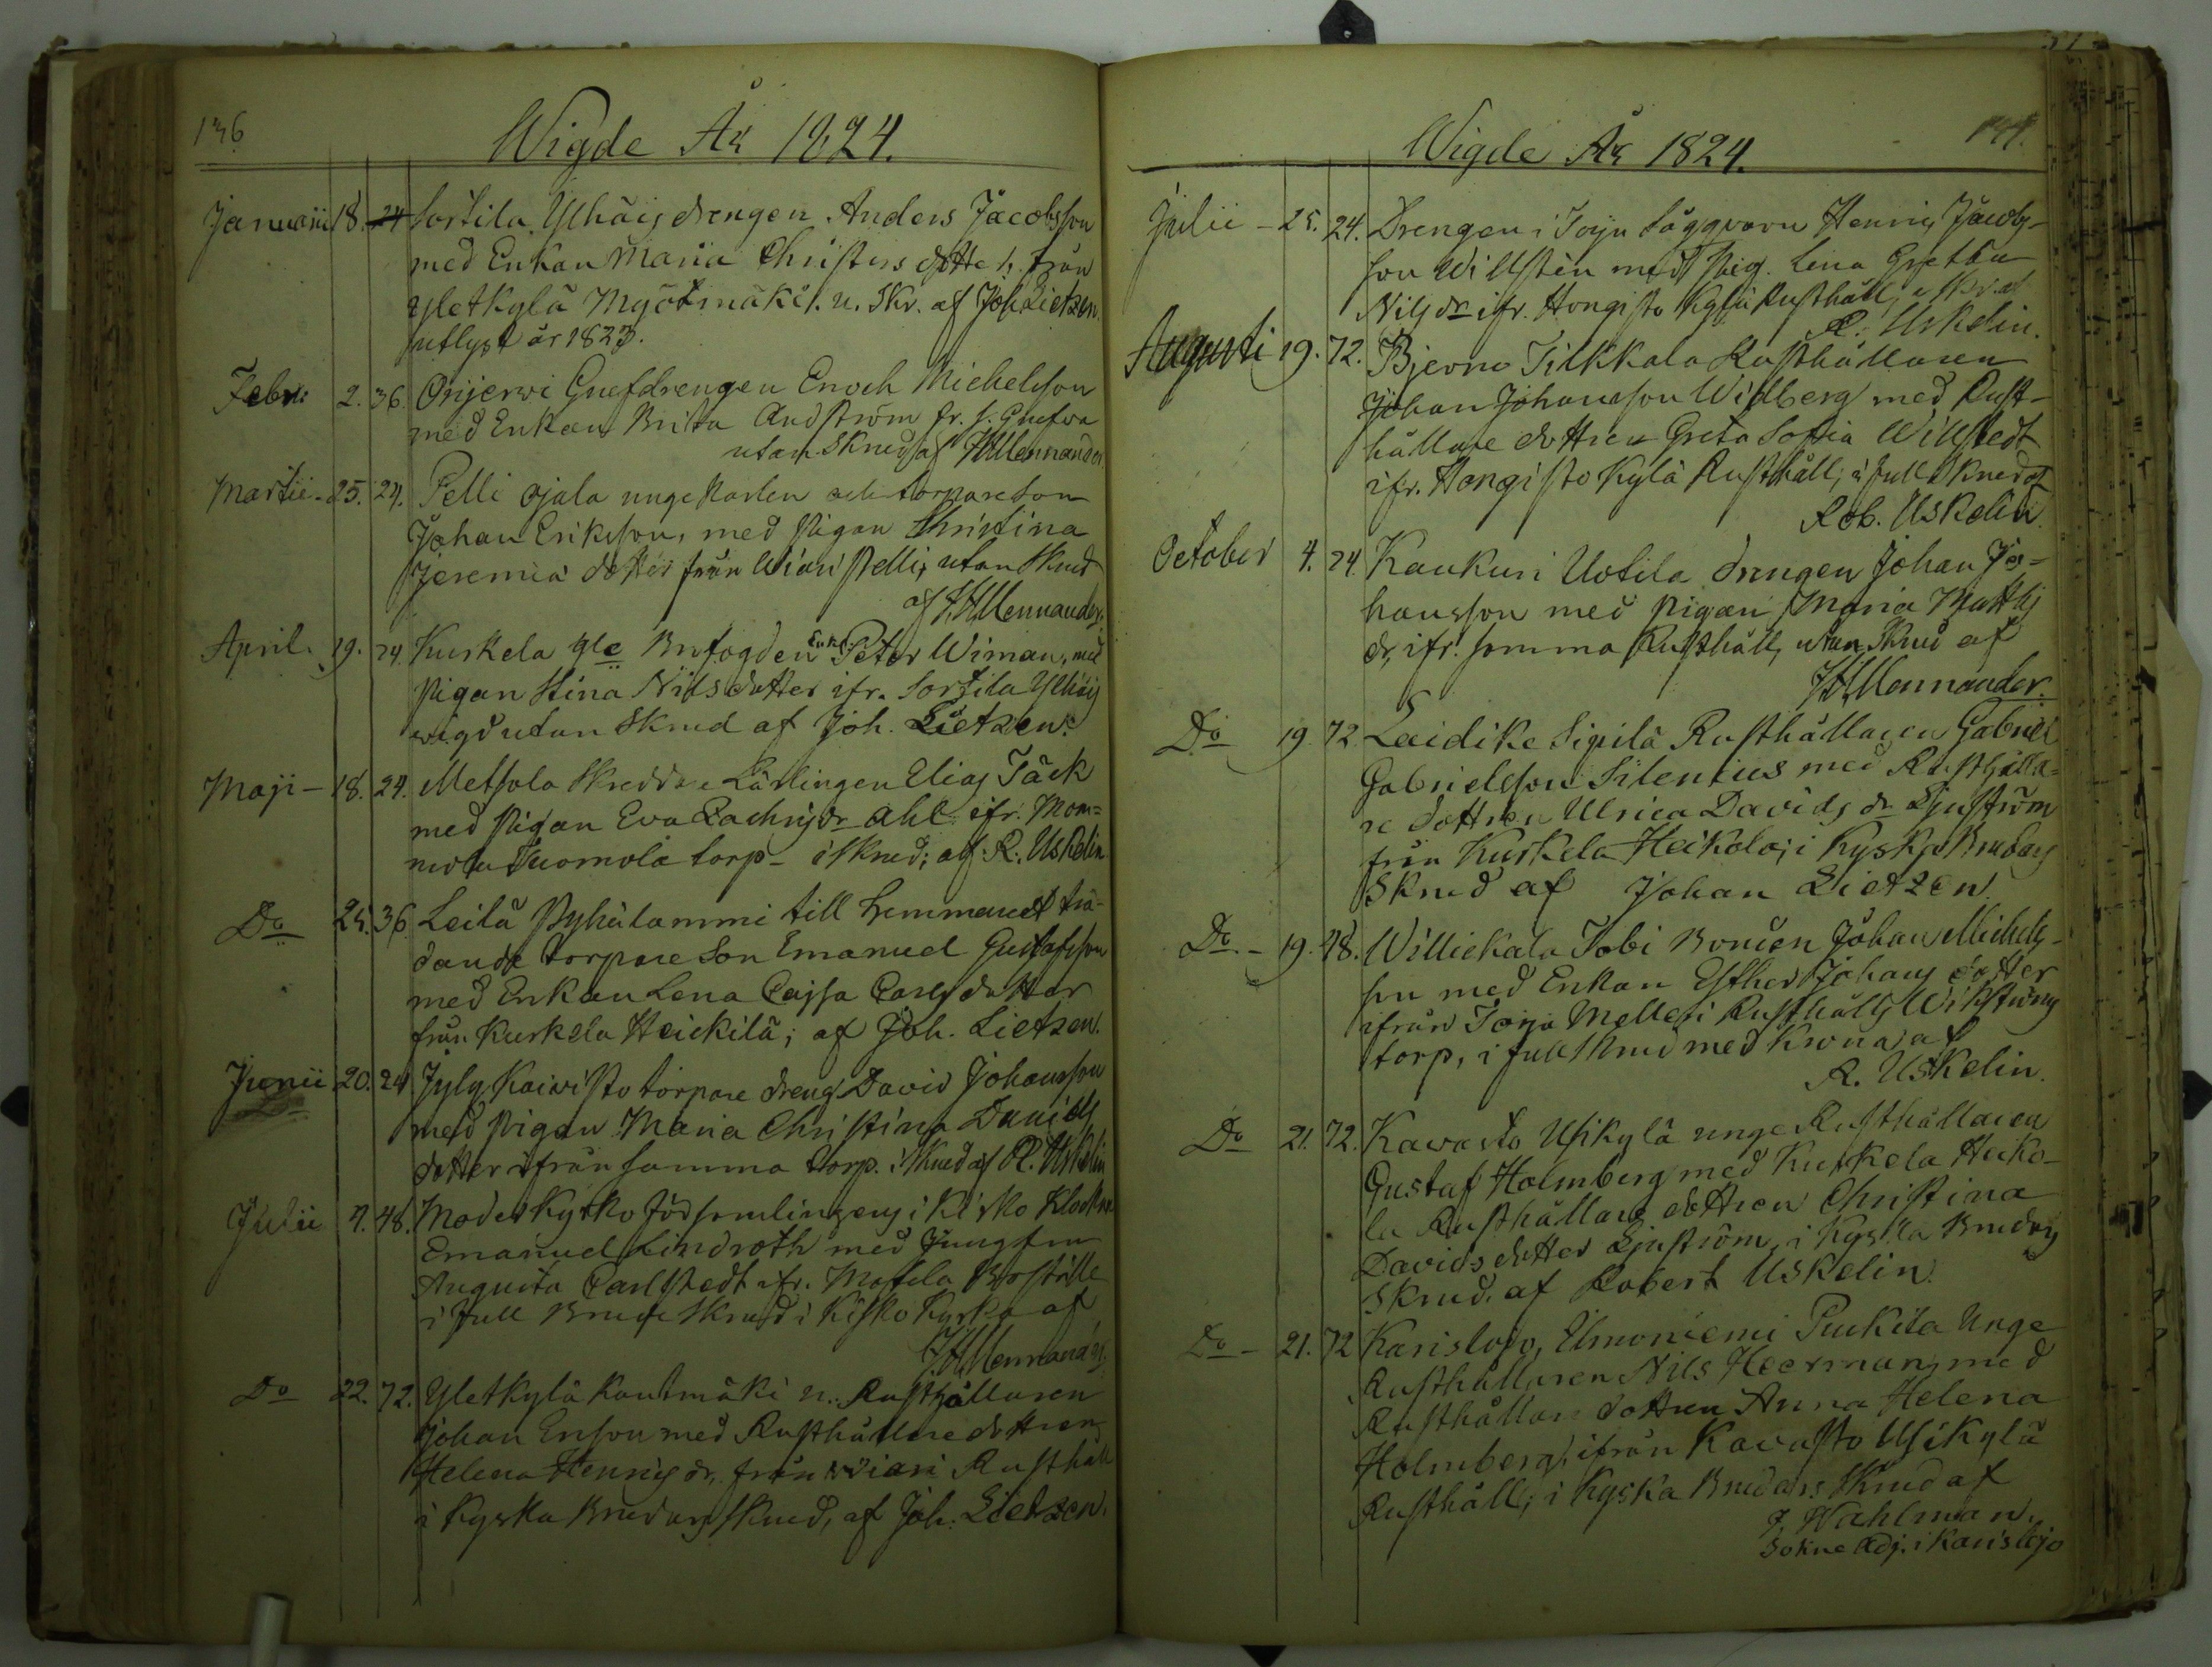 136
Wigde År 1824.
Januarii 18. 24 Sortila Ylhäis drengen Anders Jacobsson
med Enkan Maria Christers dotter, från
Yletkylä Myötmäki; u. Skr. af Joh Lietzen.
utlyst år 1823.
Febr: 2. 36. Orijerwi Grufdrengen Enoch Michelsson
med Enkan Brita Andström fr. s. Grufwa
utan Skrud af JHMennander
Martii - 25. 24. Pelli Ojala unge Karlen och torpareson
Johan Eriksson, med Pigan Christina
Jeremiæ dotter från Wiari Pelli, utan Skrud
af JHMennander.
April. 19. 24. Kurkela gle Brufogden Enkl. Peter Wiman, med
Pigan Stina Nils dotter ifr. Sortila Ylhäis
wigd utan Skrud af Joh. Lietzen.
Maji - 18. 24. Metsola Skreddare Lärlingen Elias Täck
med Pigan Eva Zachrisdr Ahl ifr. Mom=
mola Tuomola torp - i Skrud; af R. Uskelin
Do 25. 36. Leilä Pyhälammi till Hemmanet trä-
dande torpare Son Emanuel Gustafsson
med Enkan Lena Cajsa Carlsdotter
från Kurkela Heickilä; af Joh. Lietzen.
Junii 20. 24. Jyly Kaivisto torpare dreng David Johansson
med Pigan Maria Christina Davids
dotter ifrån samma torp. i Skrud af R. Uskelin
Julii 4. 48. Moderkyrko församlingens i Kisko Klockare
Emanuel Lindroth med Jungfru
Augusta Carlstedt ifr. Boställe
i full Brude Skrud i Kisko Kyrka af
JHMennander.
Do 22. 72. Yletkylä Kautmäki n. Rusthållaren
Johan Ersson med Rusthållare dottren
Helena Henrics dr, från Wiari Rusthåll
i Kyrko Brudars Skrud, af Joh. Lietzen.
Wigde År 1824.
Julii - 25. 24. Drengen i Torju Sågqvarn Henric Jacobs-
son Willsten med Pig. Lena Gretha
Nilsdr ifr. Hongisto Kylä Rusthåll, i Skr. af
R. Uskelin.
Augusti 19. 72. Bjerno Tilkkala Rusthållaren
Johan Johansson Widberg med Rust-
hållare dottren Greta Sofia Willstedt
ifr. Hongisto Kylä Rusthåll, i full Skrud af
Rob. Uskelin.
October 4. 24. Kaukuri Uotila drengen Johan Jo-
hansson med Pigan Maria Matths
dr, ifr. samma Rusthåll, utan Skrud af
JHMennander.
Do 19. 72. Laidike Sipilä Rusthållaren Gabriel
Gabrielsson Silenius med Rusthålla-
re dottren Ulrica Davids dr Ljuström
från Kurkela Heikola; i Kyrko Brudars
Skrud af Johan Lietzen.
Do - 19. 48. Williekala Tobi Bonden Johan Michels-
son med Enkan Esther Johans dotter
ifrån Torju Melleri Rusthålls Wikströms
torp, i full Skrud med Krona af
R. Uskelin.
Do 21. 72. Kavasto Usikylä unge Rusthållaren
Gustaf Holmberg med Kurkela Heiko-
la Rusthållare dottren Christina
Davidsdotter Ljuström, i Kyrko Brudars
Skrud. af Robert Uskelin.
Do - 21. 72 Karislojo, Elmoniemi Pukkila Unge
Rusthållaren Nils Heerman, med
Rusthållare dottren Anna Helena
Holmberg, ifrån Kavasto Usikylä
Rusthåll; i Kyrko Brudars Skrud af
J. Wahlman.
Sokne Adj. i Karislojo